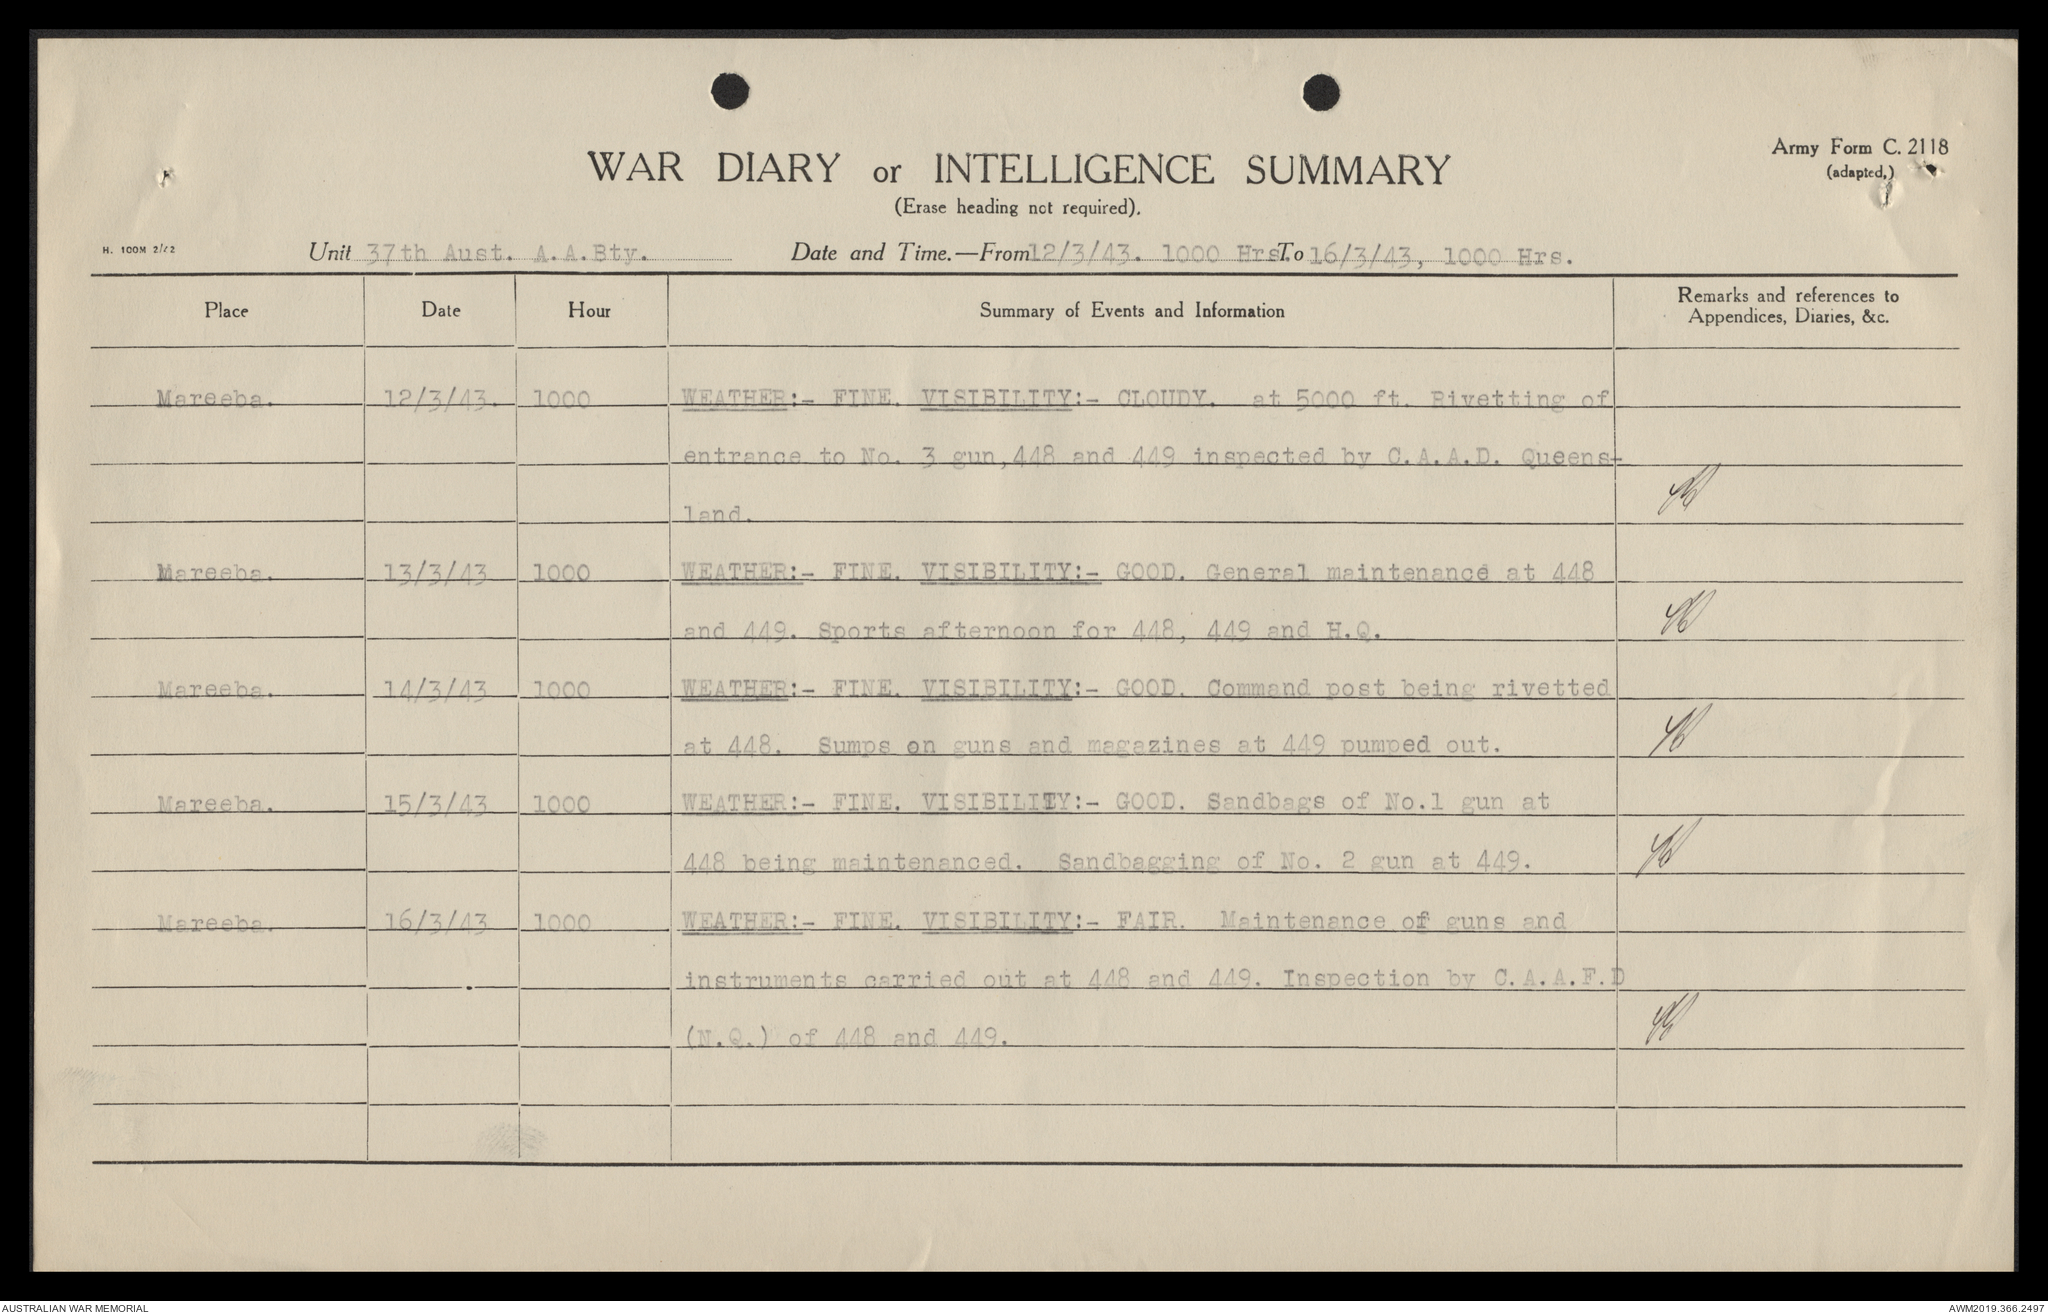 Army Form C. 2118
(adapted,)
WAR DIARY or INTELLIGENCE SUMMARY
(Erase heading not required).
H. 100M 2/42
Unit 37th Aust. A.A.Bty. Date and Time.—From 12/3/43. 1000 Hrs. To 16/3/43, 1000 Hrs.
Place Date Hour Summary of Events and Information Remarks and references to
Appendices, Diaries, &c.
Mareeba. 12/3/43. 1000 WEATHER:- FINE. VISIBILITY:- CLOUDY. at 5000 ft. Rivetting of
entrance to No. 3 gun,448 and 449 inspected by C.A.A.D. Queens-
land.
Mareeba. 13/3/43 1000 WEATHER:- FINE. VISIBILITY:- GOOD. General maintenance at 448
and 449. Sports afternoon for 448, 449 and H.Q.
Mareeba. 14/3/43 1000 WEATHER:- FINE. VISIBILITY:- GOOD. Command post being rivetted
at 448. Sumps on guns and magazines at 449 pumped out.
Mareeba. 15/3/43 1000 WEATHER:- FINE. VISIBILITY:- GOOD. Sandbags of No.1 gun at
448 being maintenanced. Sandbagging of No. 2 gun at 449.
Mareeba. 16/3/43 1000 WEATHER:- FINE. VISIBILITY:- FAIR. Maintenance of guns and
instruments carried out at 448 and 449. Inspection by C.A.A.F.D
(N.Q.) of 448 and 449.
AUSTRALIAN WAR MEMORIAL AWM2019.366.2497